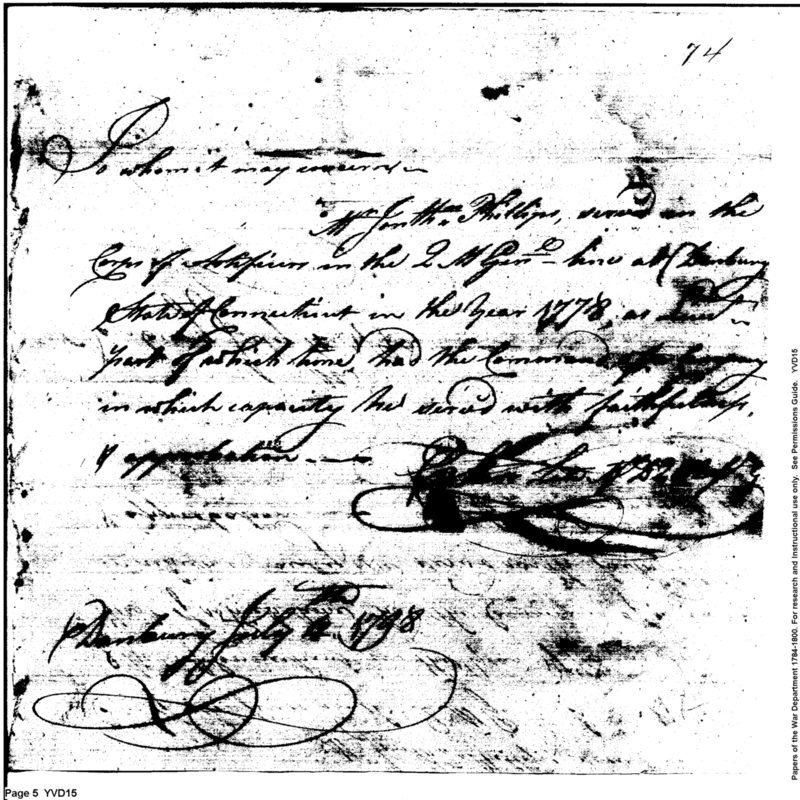 74
To whom it may concern
Mr Jonth.n Phillips, served in the
Corps of Artificers in the 2 M Genl line at Danbury
State of Connecticut in the Year 1778, as
part of which time, had the Command of a Company
in which capacity he served with faithfulness,
& approbation
Danbury July 1798
Page 5 YVD15
Papers of the War Department 1784-1800. For research and instructional use only. See Permissions Guide. YVD15